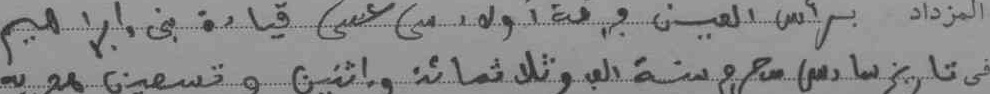 المزداد برأس العين وجهة أولاد سي عيسى قيادة بني ابراهيم
في تاريخ سادس محرم سنة الف وثلاثمائة واثنين وتسعين هجرية